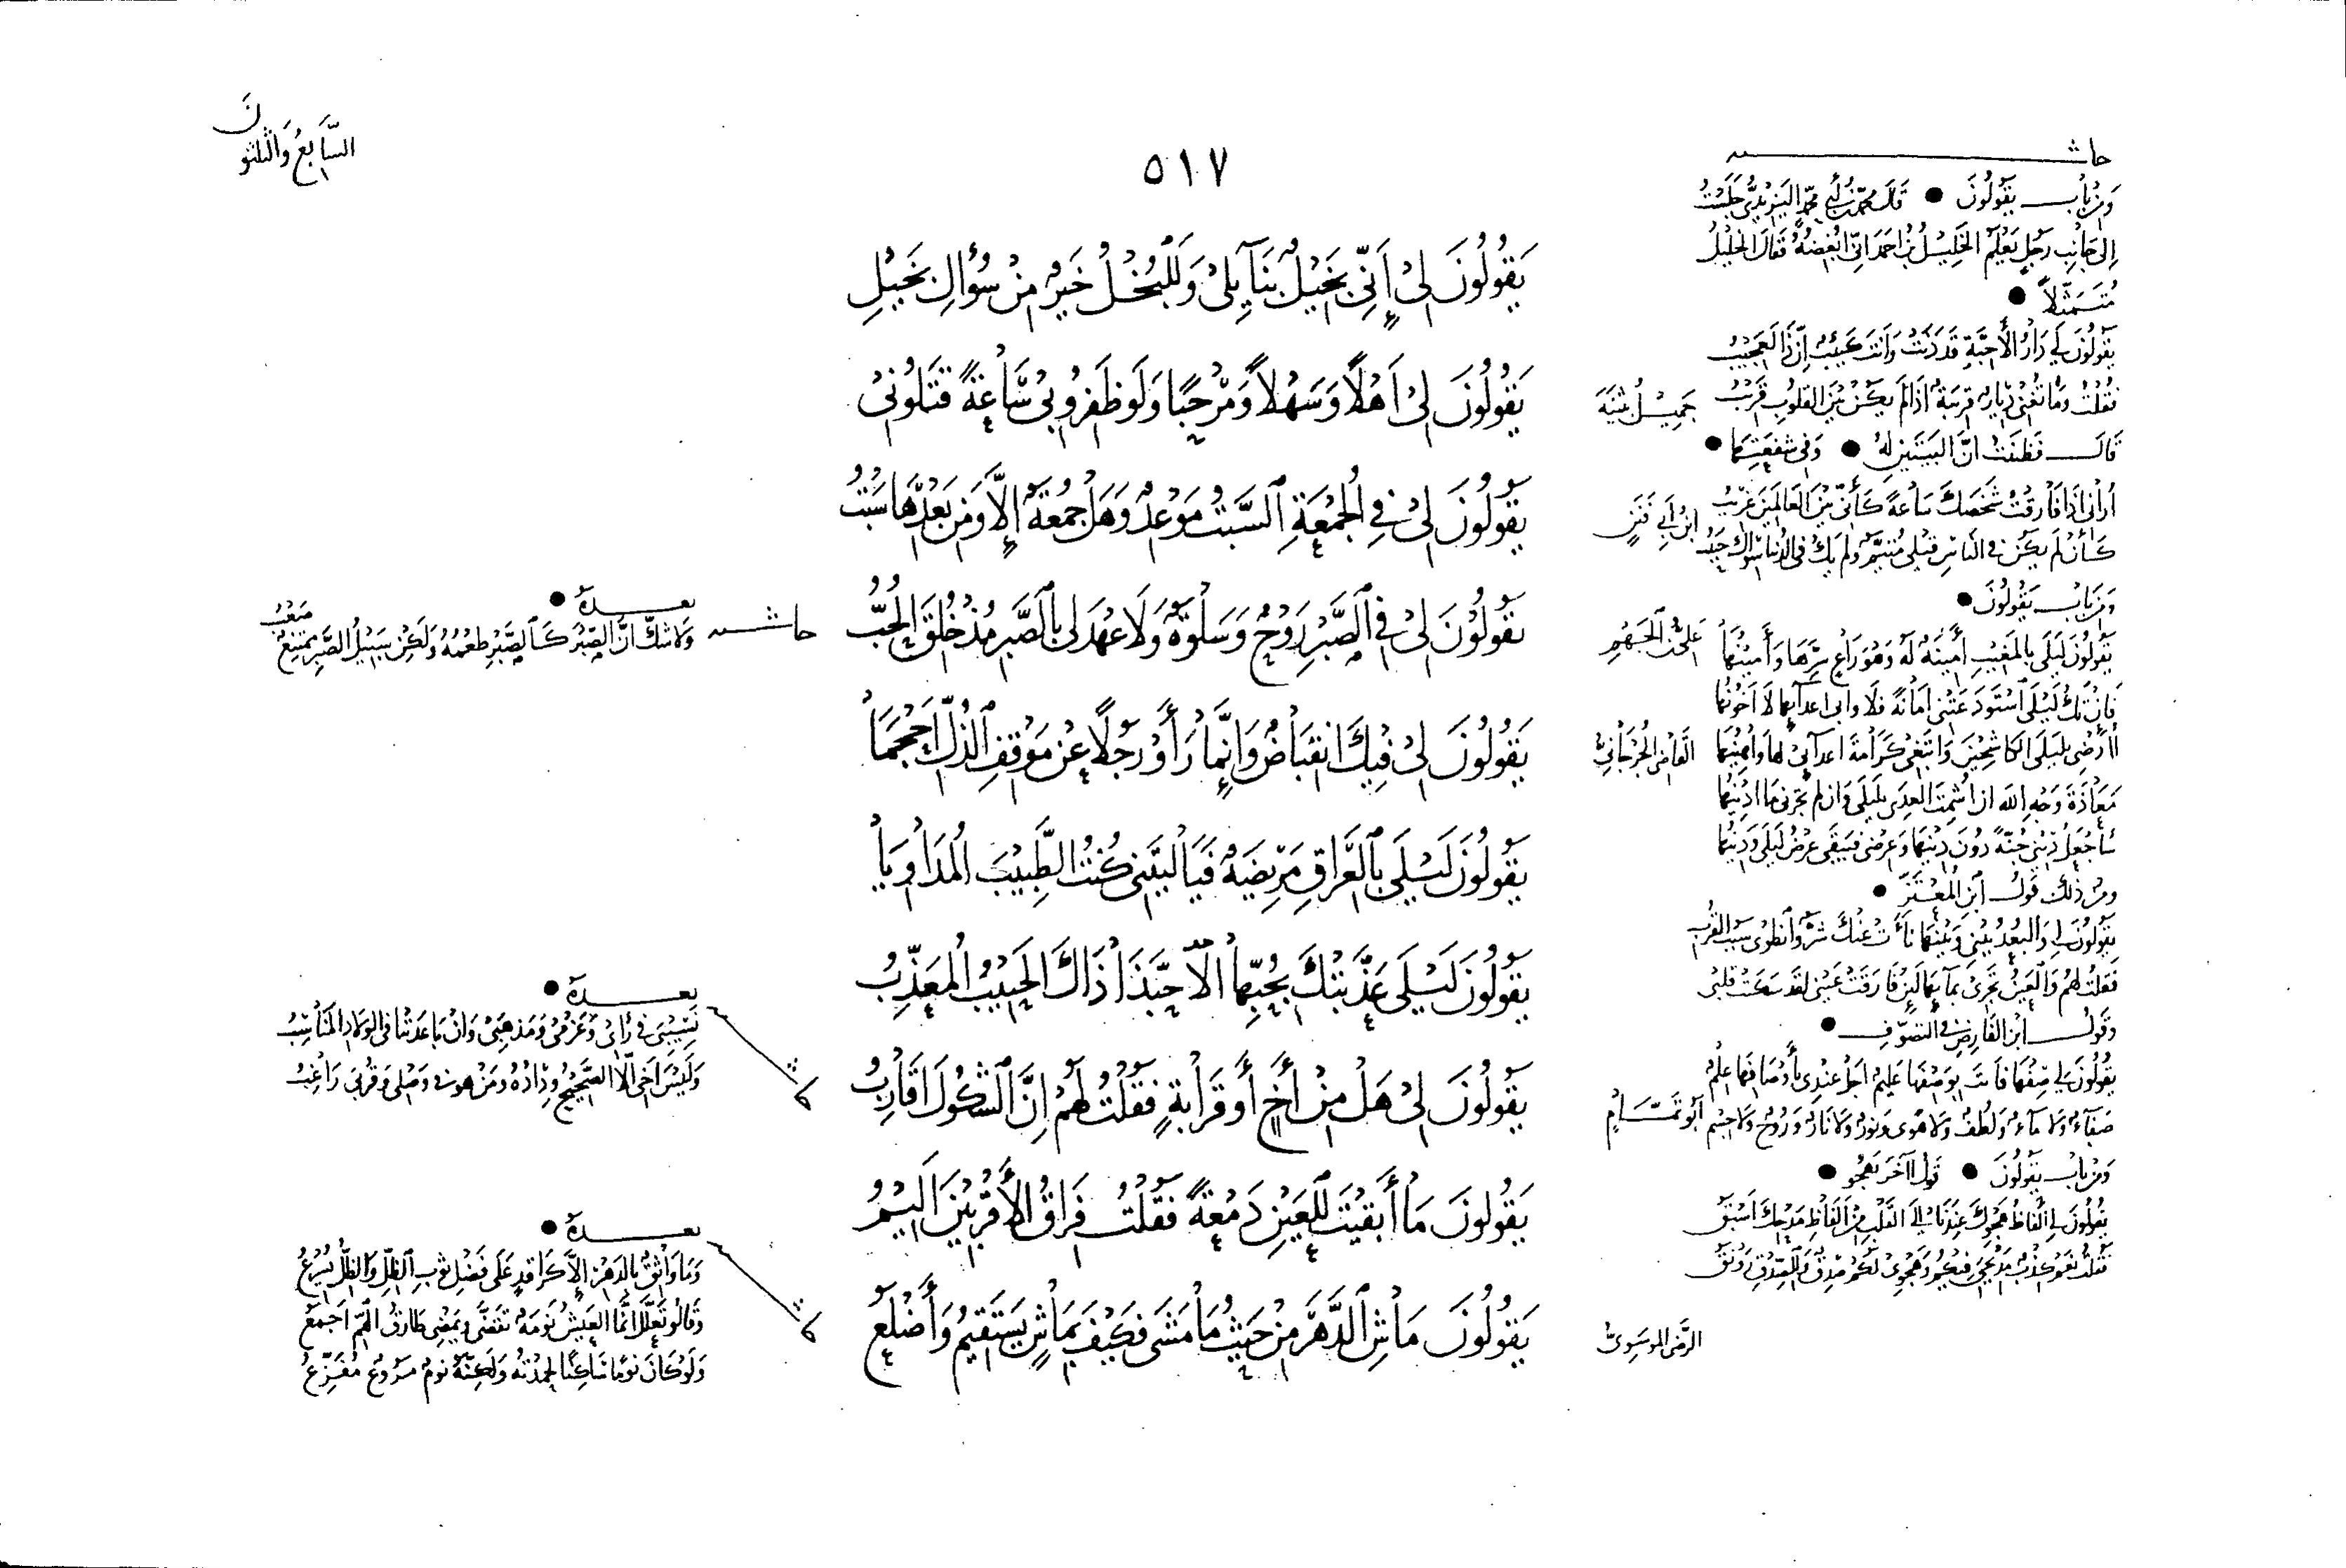 السَّابِعُ وَالثلثُونَ
٥١٧
يَقُولُونَ لِيْ إِنِّي بَخَيْلٌ بِنَآيِلِيْ وَلَلْبُخْلُ خَيْرٌ مِنْ سُؤَالِ بَخَيْلِ
يَقُولُونَ لِيْ أَهْلاً وَسَهْلاً وَمَرْحَبًا وَلَو ظَفِرُوا بِيْ سَاعَةً قَتَلُونِيْ
يَقُولُونَ لِيْ فِي الْجُمْعَةِ السَّبْتُ مَوْعِدٌ وَهَلْ جُمْعَةٌ إِلَّا وَمِن بَعْدِهَا سَبْتُ
يَقُولُوْنَ لِيْ فِي الصَّبْرِ رَوْحٌ وَسَلْوَةٌ وَلَا عَهْدَ لِي بِالصَّبْرِ مُذْ خُلِقَ الْحُبُّ
يَقُولُونَ لِيْ فِيْكَ انقبَاضٌ وَإِنَّمَا رَأَوْ رَجُلاً عَنْ مَوْقِفِ الذُّلِّ أَحْجَمَا
يَقُولُونَ لَيْلَى بِالْعِرَاقِ مَرِيْضَةٌ فَيَا لَيْتَنِي كُنْتُ الطَّبِيْبَ الْمُدَاوِيَا
يَقُولُونَ لَيْلَى عَذَّبَتْكَ بِحُبِّهَا أَلَا حَبَّذَا ذَاكَ الْحَبِيْبُ الْمُعَذِّبُ
يَقُولُونَ لِيْ هَلْ مِنْ أَخٍ أَو قَرَابَةٍ فَقُلْتُ لَهُمْ إِنَّ الشُّكُولَ أَقَارِبُ
يَقُولُونَ مَا أَبْقَيْتَ لِلْعَيْنِ دَمْعَةً فَقُلْتُ فِرَاقُ الأَقْرَبِيْنَ أَلِيْمُ
يَقُولُونَ مَاشِ الدَّهْرَ مِنْ حَيْثُ مَا مَشَى فَكَيْفَ بِمَاشٍ يَسْتَقِيْمُ وَأَضْلَعُ
حاشية
وَمِنْ بَاب يَقُولُونَ ● قَالَ مُحَمَّدُ بْنُ أَبِي مُحَمَّدٍ الْيَزِيْدِيُّ جَلَسْتُ
إِلَى جَانِبِ رَجُلٍ يَعْلَمُ الْخَلِيْلُ بْنُ أَحْمَدَ أَنِّي أُبْغِضُهُ فَقَالَ الْخَلِيْلُ
مُتَمَثِّلاً ●
يَقُولُونَ لِي دَارُ الأَحِبَّةِ قَدْ دَنَتْ وَأَنْتَ كَئِيْبٌ إِنَّ ذَا لَعَجِيْبُ
فَقُلْتُ وَمَا تُغْنِي دِيَارٌ قَرِيْبَةٌ إِذَا لَم يَكُنْ بَيْنَ الْقُلُوبِ قَرِيْبُ
قَالَ فَظَنَنْتُ أَنَّ الْبَيْتَيْنِ لَهُ ●
أَرَانِي إِذَا فَارَقْتُ شَخْصَكَ سَاعَةً كَأَنِّي بَيْنَ الْعَالَمِيْنَ غَرِيْبُ
كَأَنْ لَم يَكُنْ فِي النَّاسِ قَبْلِي مُتَيَّمٌ وَلَم يَكُ فِي الدُّنْيَا سِوَاكَ حَبِيْبُ
وَمِنْ بَابِ يَقُولُونَ ●
يَقُولُونَ لَيْلَى بِالْمَغِيْبِ أَمِيْنَةٌ لَهُ وَهُوَ رَاعٍ سِرَّهَا وَأَمِيْنُهَا
فَإِنْ تَكُ لَيْلَى اسْتَوْدَعَتْنِي أَمَانَةً فَلَا وَأَبِي أَعْدَآئِهَا لَا أَخُونُهَا
أَأُرْضِي بِلَيْلَى الْكَاشِحِيْنَ وَأَبْتَغِي كَرَامَةَ أَعْدَآئِي لَهَا وَأُهِيْنُهَا
مَعَاذَةَ وَجْهِ اللَّهِ أَنْ أُشْمِتَ الْعِدَى بِلَيْلَى وَإِن لَم تَجْزِنِي مَا أَدِيْنُهَا
سَأَجْعَلُ دِيْنِي جُنَّةً دُونَ دِيْنِهَا وَعِرْضِي فَيَبْقَى عِرْضُ لَيْلَى وَدِيْنُهَا
وَمِنْ ذَلِكَ قَوْلُ ابْنِ الْمُعْتَزِّ ●
يَقُولُونَ لِي وَالْبُعْدُ بَيْنِي وَبَيْنَهَا نَأَتْ عَنْكَ شَرٌّ وَانْطَوَى سَبَبُ الْقُرْبِ
فَقُلْتُ لَهُمْ وَالْعَيْنُ تَجْرِي بِمَآئِهَا لَئِنْ فَارَقَتْ عَيْنِي لَقَدْ سَكَنَتْ قَلْبِي
وَقَوْلُ ابْنِ الْفَارِضِ فِي التَّصَوُّفِ ●
يَقُولُونَ لِي صِفْهَا فَأَنْتَ بِوَصْفِهَا عَلِيْمٌ أَجَلْ عِنْدِي بِأَوْصَافِهَا عِلْمُ
صَفَآءٌ وَلَا مَآءٌ وَلُطْفٌ وَلَا هَوًى وَنُورٌ وَلَا نَارٌ وَرُوحٌ وَلَا جِسْمُ
وَمِنْ بَابِ يَقُولُونَ ● قَوْلُ آخَرَ يَهْجُو ●
يَقُولُونَ لِي أَلْفَاظُ هَجْوِكَ عِنْدَنَا إِلَى الْقَلْبِ مِنْ أَلْفَاظِ مَدْحِكَ أَسْبَقُ
فَقُلْتُ نَعَمْ كِذْبٌ مَدِيْحِي فِيْكُمُ وَهَجْوِي لَكُمْ صِدْقٌ وَلِلصِّدْقِ رَوْنَقُ
جَمِيْلُ بُثَيْنَةَ
عَلِيُّ بْنُ الْجَهْمِ
الْقَاضِي الْجُرْجَانِيُّ
أَبُو تَمَّامٍ
الرَّضِيُّ الْمُوسَوِيُّ
حاشية
بَعْدَهُ ●
وَلَا شَكَّ أَنَّ الصَّبْرَ كَالصَّبْرِ طَعْمُهُ وَلَكِنْ سَبِيْلُ الصَّبْرِ مُمْتَنِعٌ صَعْبُ
بَعْدَهُ ●
نَسِيْبِيَ فِي رَأْيٍ وَعَزْمِي وَمَذْهَبِيْ وَإِنْ بَاعَدَتْنَا فِي الْوِلَادِ الْمَنَاسِبُ
وَلَيْسَ أَخِي إِلَّا الصَّحِيْحُ وِدَادُهُ وَمَنْ هُوَ فِي وَصْلِي وَقُرْبِيَ رَاغِبُ
بَعْدَهُ ●
وَمَا وَاثِقٌ بِالدَّهْرِ إِلَّا كَرَاقِدٍ عَلَى فَضْلِ ثَوْبِ الظِّلِّ وَالظِّلُّ يُسْرِعُ
وَقَالُو تَعَلَّلْ إِنَّمَا الْعَيْشُ نَوْمَةٌ تُقَضَّى وَيَمْضِي طَارِقُ الْهَمِّ أَجْمَعُ
وَلَوْ كَانَ نَوْمًا سَاكِنًا لَحَمِدْتُهُ وَلَكِنَّهُ نَوْمٌ مَرُوعٌ مُفَزَّعُ